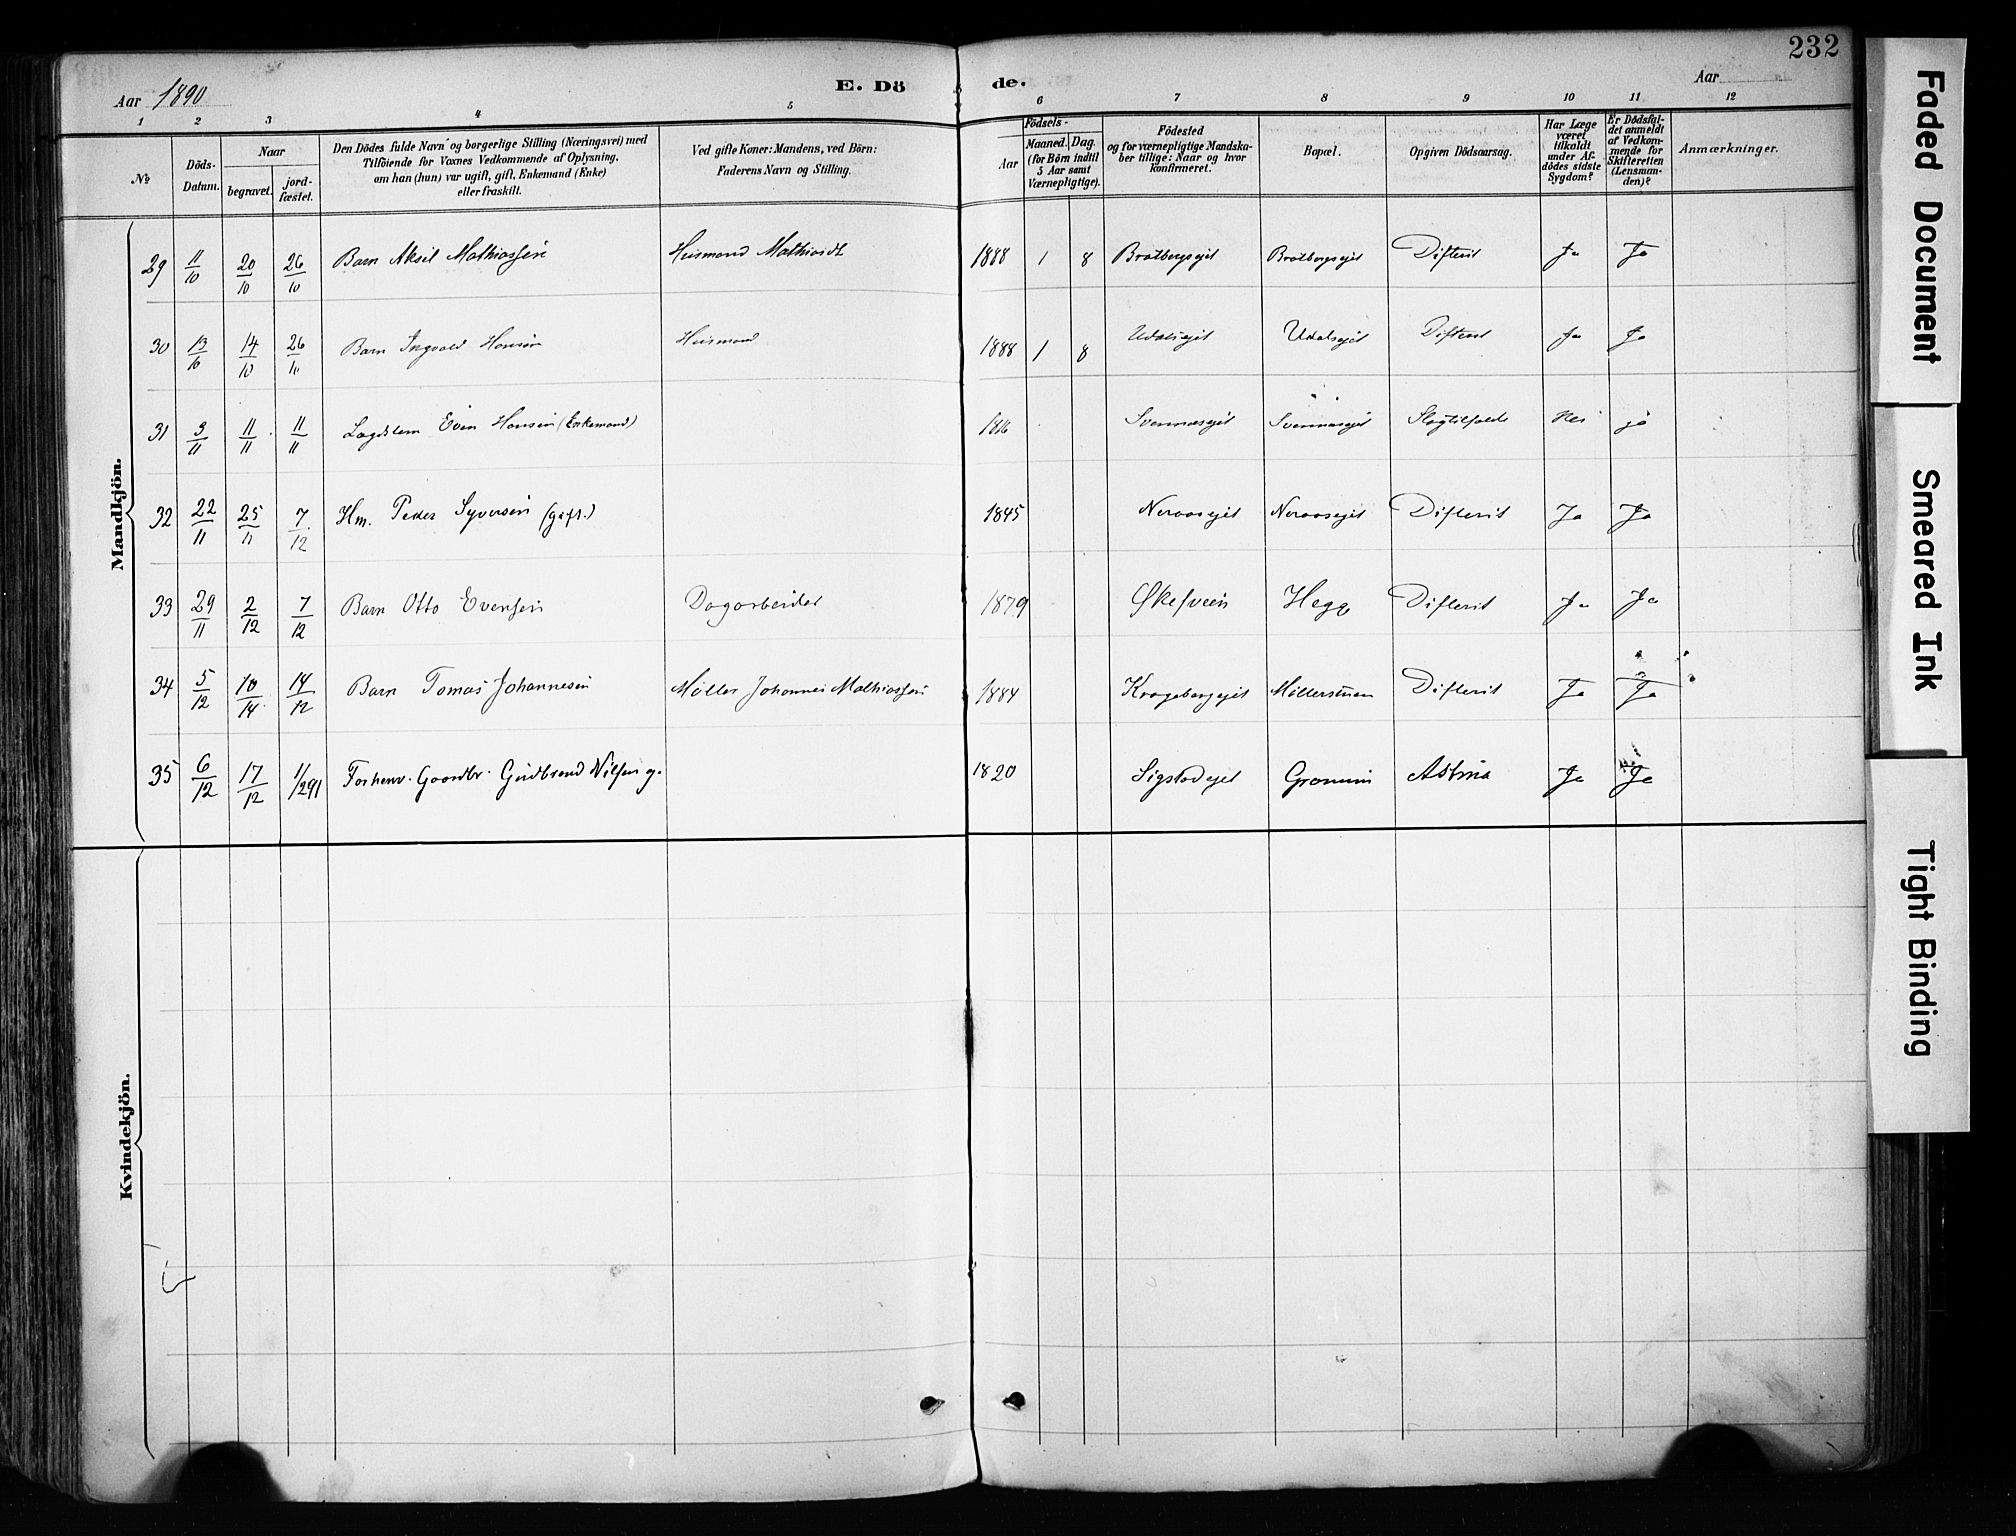 232
Aar 1890
E. Dö
de.
Aar
1 2 3 4 5 6 7 8 9 10 11 12
No
Döds-Datum.
Naar
begravet.
jord-fæstet.
Den Dödes fulde Navn og borgerlige Stilling (Næringsvei) med
Tilföiende for Voxnes Vedkommende af Oplysning,
om han (hun) var ugift, gift, Enkemand (Enke)
eller fraskilt.
Ved gifte Koner: Mandens, ved Börn:
Faderens Navn og Stilling.
Födsels-
Aar
Maaned. Dag.
(for Börn indtil
5 Aar samt
Værnepligtige).
Födested
og for værnepligtige Mandska-
ber tillige: Naar og hvor
konfirmeret.
Bopæl.
Opgiven Dödsaarsag.
Har Læge
været
tilkaldt
under Af-
dödes sidste
Sygdom?
Er Dödsfal-
det anmeldt
af Vedkom-
mende for
Skifteretten
(Lensman-
den)?
Anmærkninger.
Mandkjön.
29 11/10 20/10 26/10 Barn Aksel Mathiassen Husmand Mathias 1888 1 8 Bratbergsejet Bratbergsejet Difterit Ja Ja
30 13/10 14/10 26/10 Barn Ingvald Hansen Husmand 1888 1 8 Udalsejet Udalsejet Difterit Ja Ja
31 3/11 11/11 11/11 Lægdslem Even Hansen (Enkemand) 1816 Svennæsejet Svennæsejet Slagtilfælde Nei ja
32 22/11 25/11 7/12 Hm. Peder Syversen (gift.) 1845 Neraasejet Neraasejet Difterit Ja Ja
33 29/11 2/12 7/12 Barn Otto Evensen Dagarbeider 1879 Økesveen Hegg Difterit Ja Ja
34 5/12 10/14 14/12 Barn Tomas Johannesen Møller Johannes Mathiassen 1884 Kragebergejet Møllerstuen Difterit Ja Ja
35 6/12 17/12 1/291 Forhenv. Gaardbr. Gudbrand Nilsen g. 1820 Sigstadejet Gramm Astma Ja Ja
Kvindekjön.
Faded Document
Smeared Ink
Tight Binding